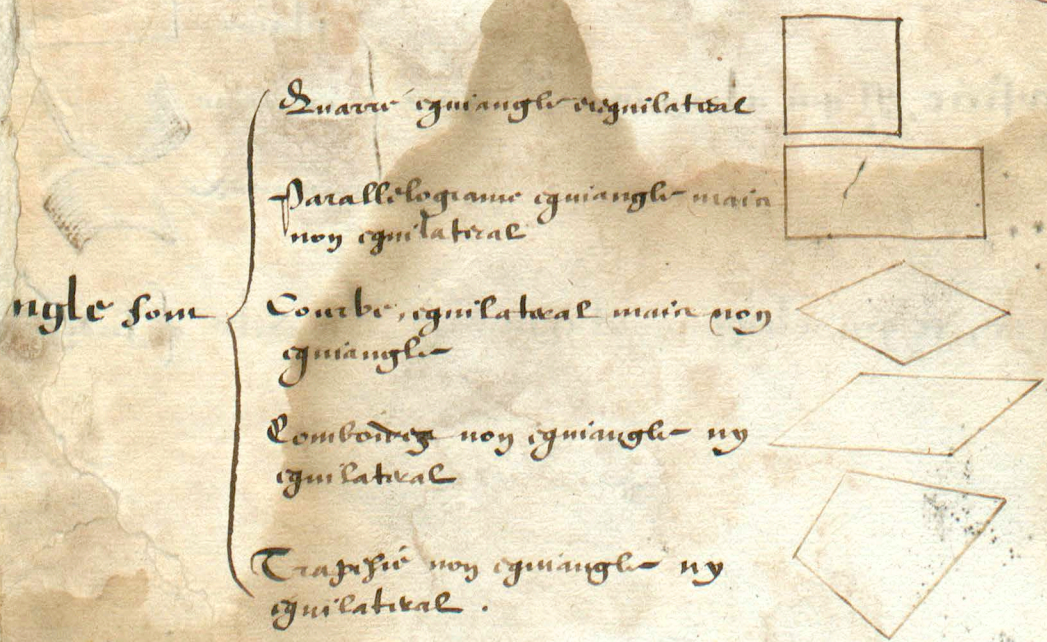 Quarré equiangle et equilateral
Parallelograme equiangle mais
non equilateral
ngle sont
Courbe, equilateral mais non
equiangle
Comboidez non equiangle ny
equilateral
Trapesié non equiangle ny
equilateral.